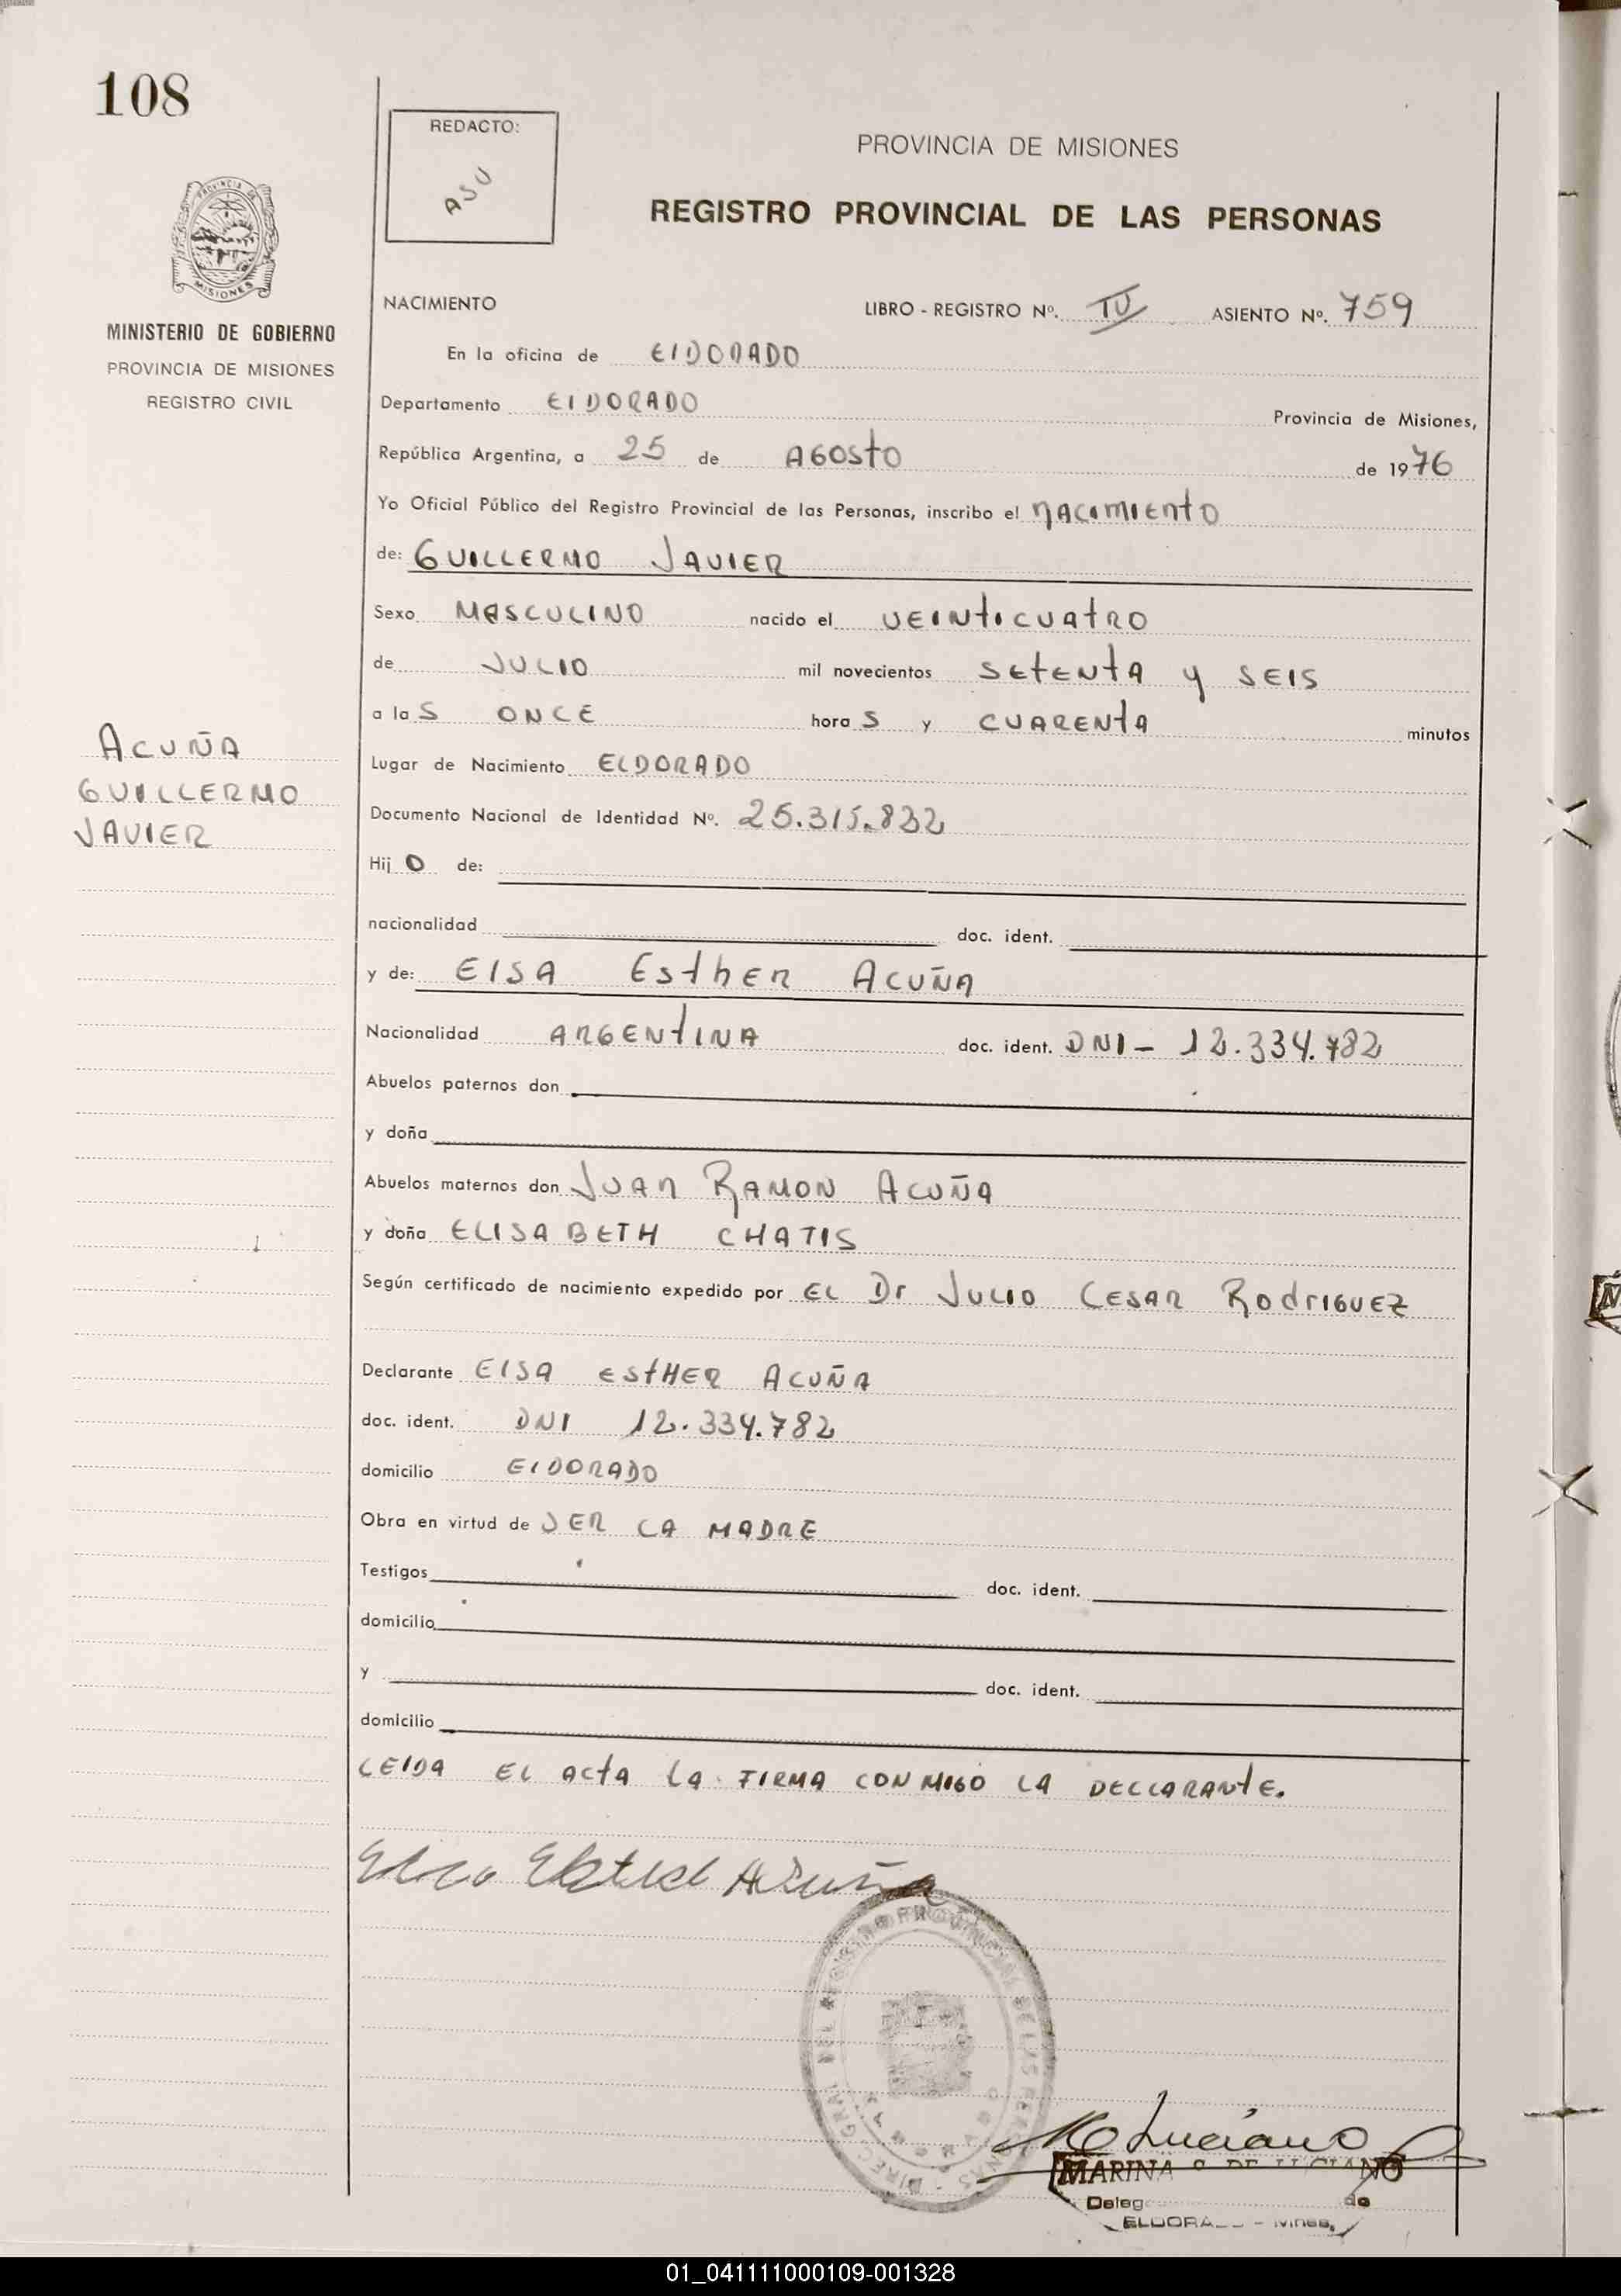 108
REDACTO:
ASU
PROVINCIA DE MISIONES
REGISTRO PROVINCIAL DE LAS PERSONAS
PROVINCIA DE
MISIONES
MINISTERIO DE GOBIERNO
PROVINCIA DE MISIONES
REGISTRO CIVIL
NACIMIENTO LIBRO - REGISTRO Nº. IV ASIENTO Nº. 759
En la oficina de ElDORADO
Departamento ElDORADO Provincia de Misiones,
República Argentina, a 25 de AGOSTO de 1976
Yo Oficial Público del Registro Provincial de las Personas, inscribo el NACIMIENTO
de: GUILLERMO JAVIER
Sexo MASCULINO nacido el VEINTICUATRO
de JULIO mil novecientos SETENTA y SEIS
a las ONCE horas y CUARENTA minutos
ACUÑA
GUILLERMO
JAVIER
Lugar de Nacimiento ELDORADO
Documento Nacional de Identidad Nº. 25.315.832
Hijo de:
nacionalidad doc. ident.
y de: ElSA ESTHER ACUÑA
Nacionalidad ARGENTINA doc. ident. DNI - 12.334.782
Abuelos paternos don
y doña
Abuelos maternos don JUAN RAMON ACUÑA
y doña ELISABETH CHATIS
Según certificado de nacimiento expedido por EL Dr JULIO CESAR RODRIGUEZ
Declarante ElSA ESTHER ACUÑA
doc. ident. DNI 12.334.782
domicilio ElDORADO
Obra en virtud de SER LA MADRE
Testigos doc. ident.
domicilio
y doc. ident.
domicilio
LEIDA EL ACTA LA FIRMA CONMIGO LA DECLARANTE.
Elsa Esther Acuña
M Luciano
MARINA S. DE LUCIANO
Deleg
ELDORA - Mnes.
01_041111000109-001328